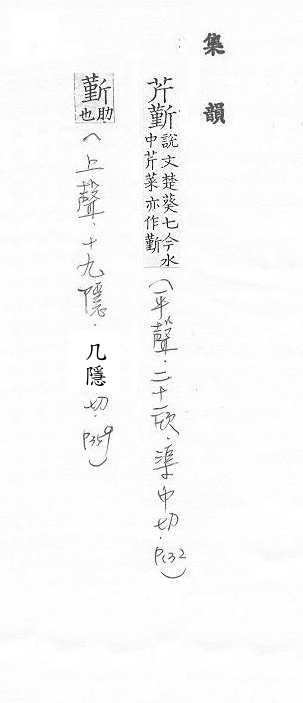 集韻
芹斳說文楚葵也今水
中芹菜亦作斳
（平聲．二十一欣．渠巾切．P132）
斳肋
也
（上聲．十九隱．几隱切．P359）